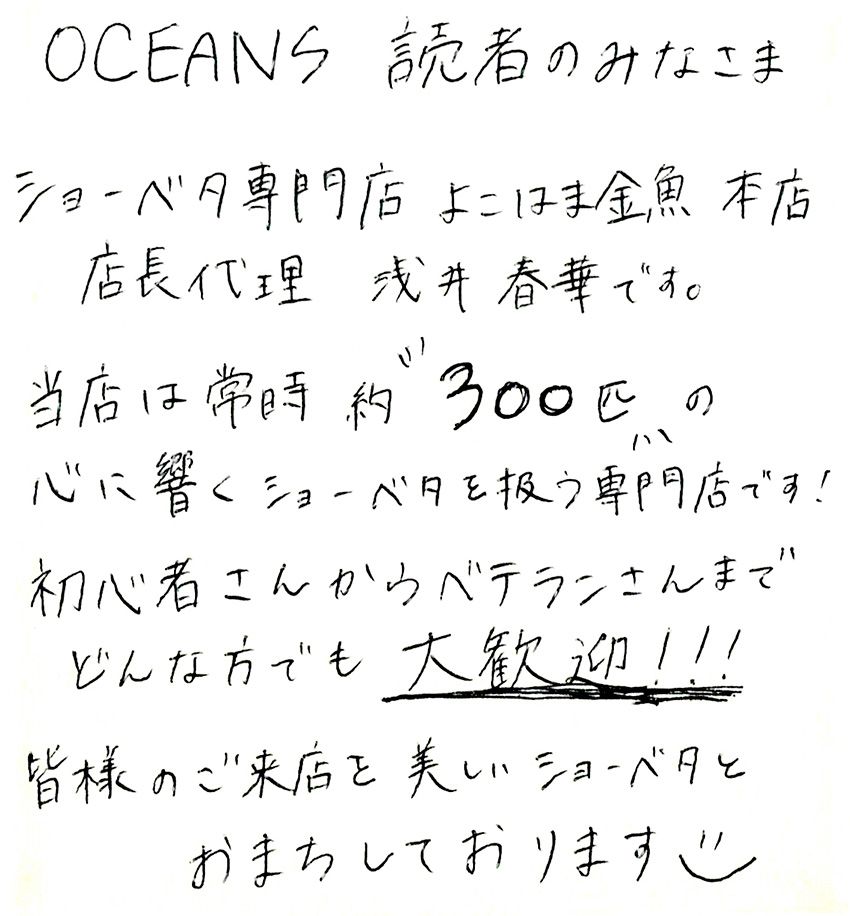 OCEANS 読者のみなさま
ショーベタ専門店 よこはま金魚 本店
店長代理 浅井 春華です。
当店は常時 約 300匹 の
心に響くショーベタを扱う専門店です!
初心者さんからベテランさんまで
どんな方でも 大歓迎!!!
皆様のご来店を 美しいショーベタと
おまちしております